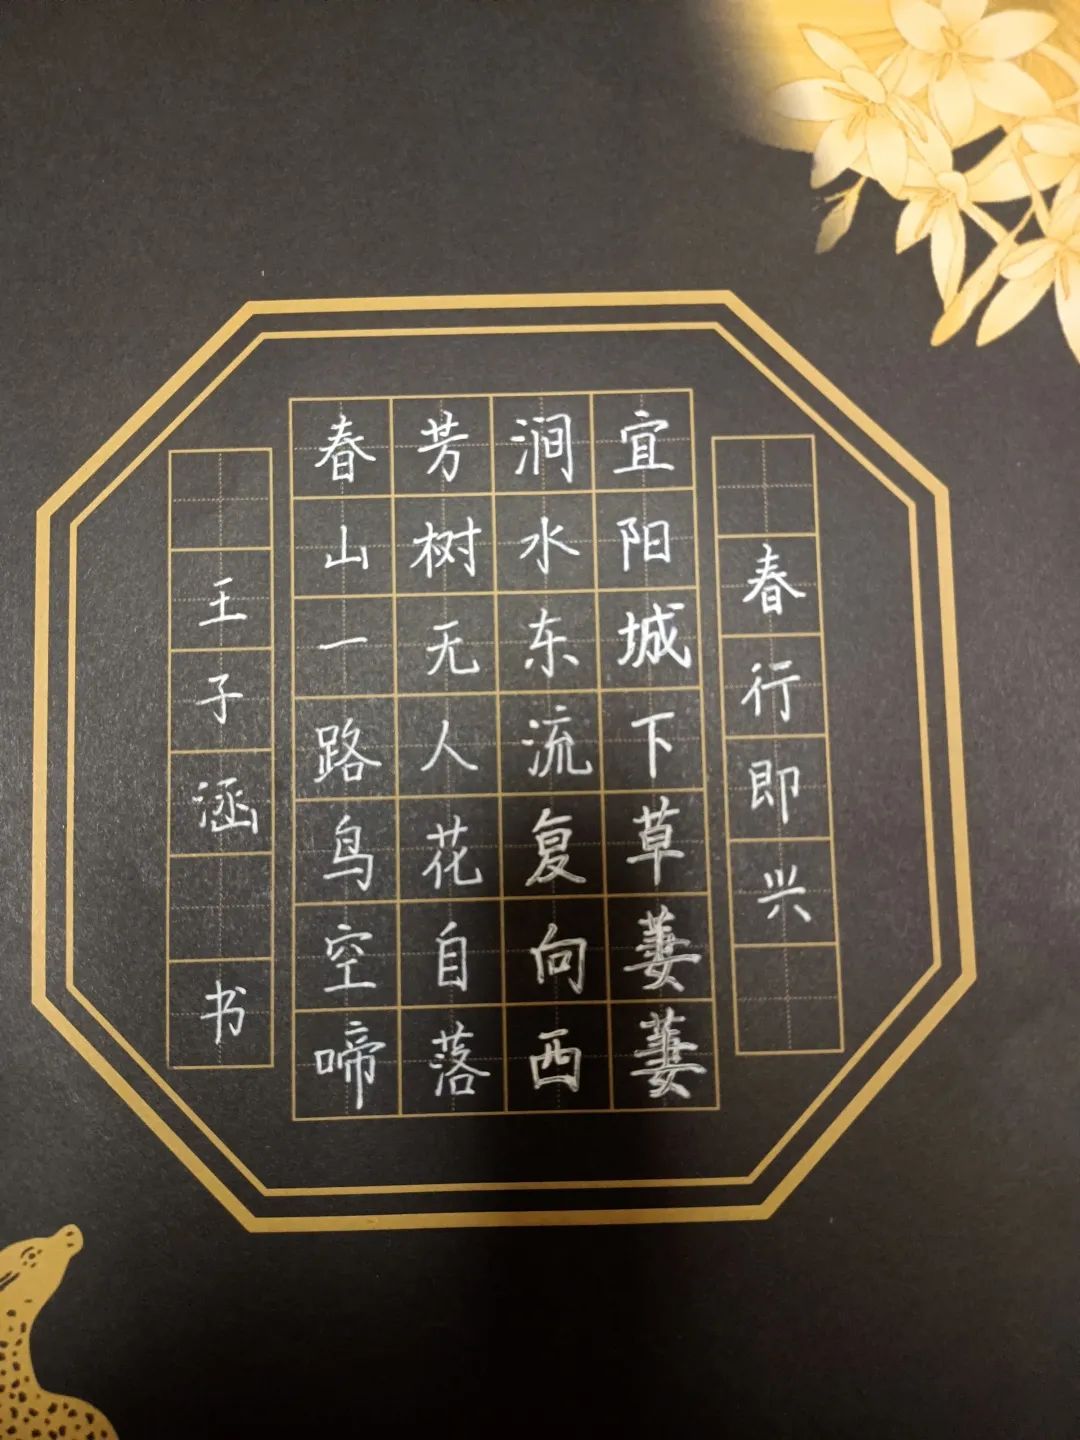 春行即兴
宜阳城下草萋萋
涧水东流复向西
芳树无人花自落
春山一路鸟空啼
王子涵书